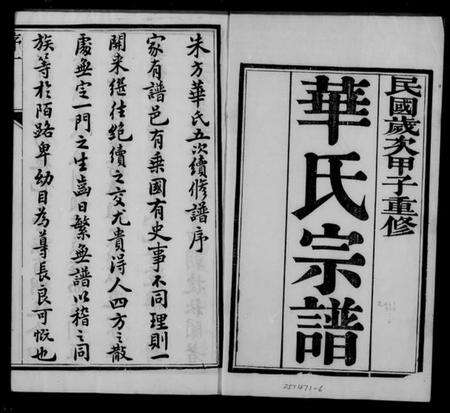 民國歲次甲子重修
華氏宗譜
251471-6
朱方華氏五次續修譜序
家有譜邑有乘國有史事不同理則一
開來繼往絕續之交尤貴得人四方之散
處無定一門之生齒日繁無譜以稽之同
族等於陌路卑幼目為尊長良可慨也
序一